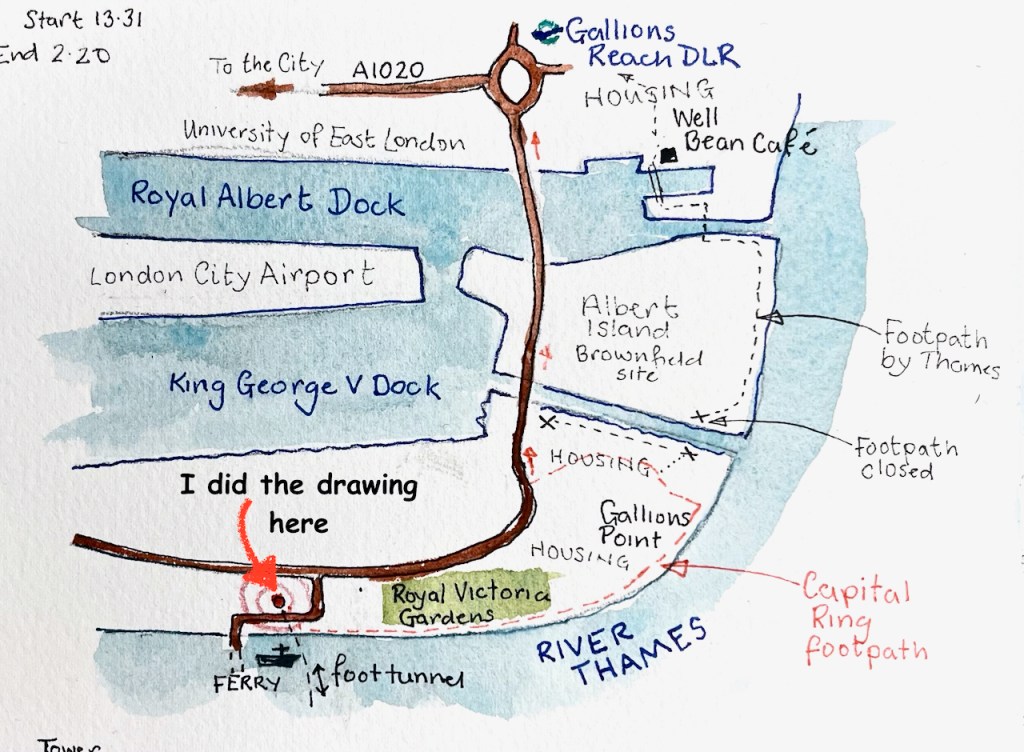 Start 13.31
End 2.20
Gallions
Reach DLR
To the City
A1020
HOUSING
Well
Bean Café
University of East London
Royal Albert Dock
London City Airport
Albert
Island
Brownfield
site
Footpath
by Thames
King George V Dock
Footpath
closed
HOUSING
I did the drawing
here
Gallions
Point
HOUSING
Royal Victoria
Gardens
Capital
Ring
footpath
RIVER
THAMES
FERRY
foot tunnel
Tower